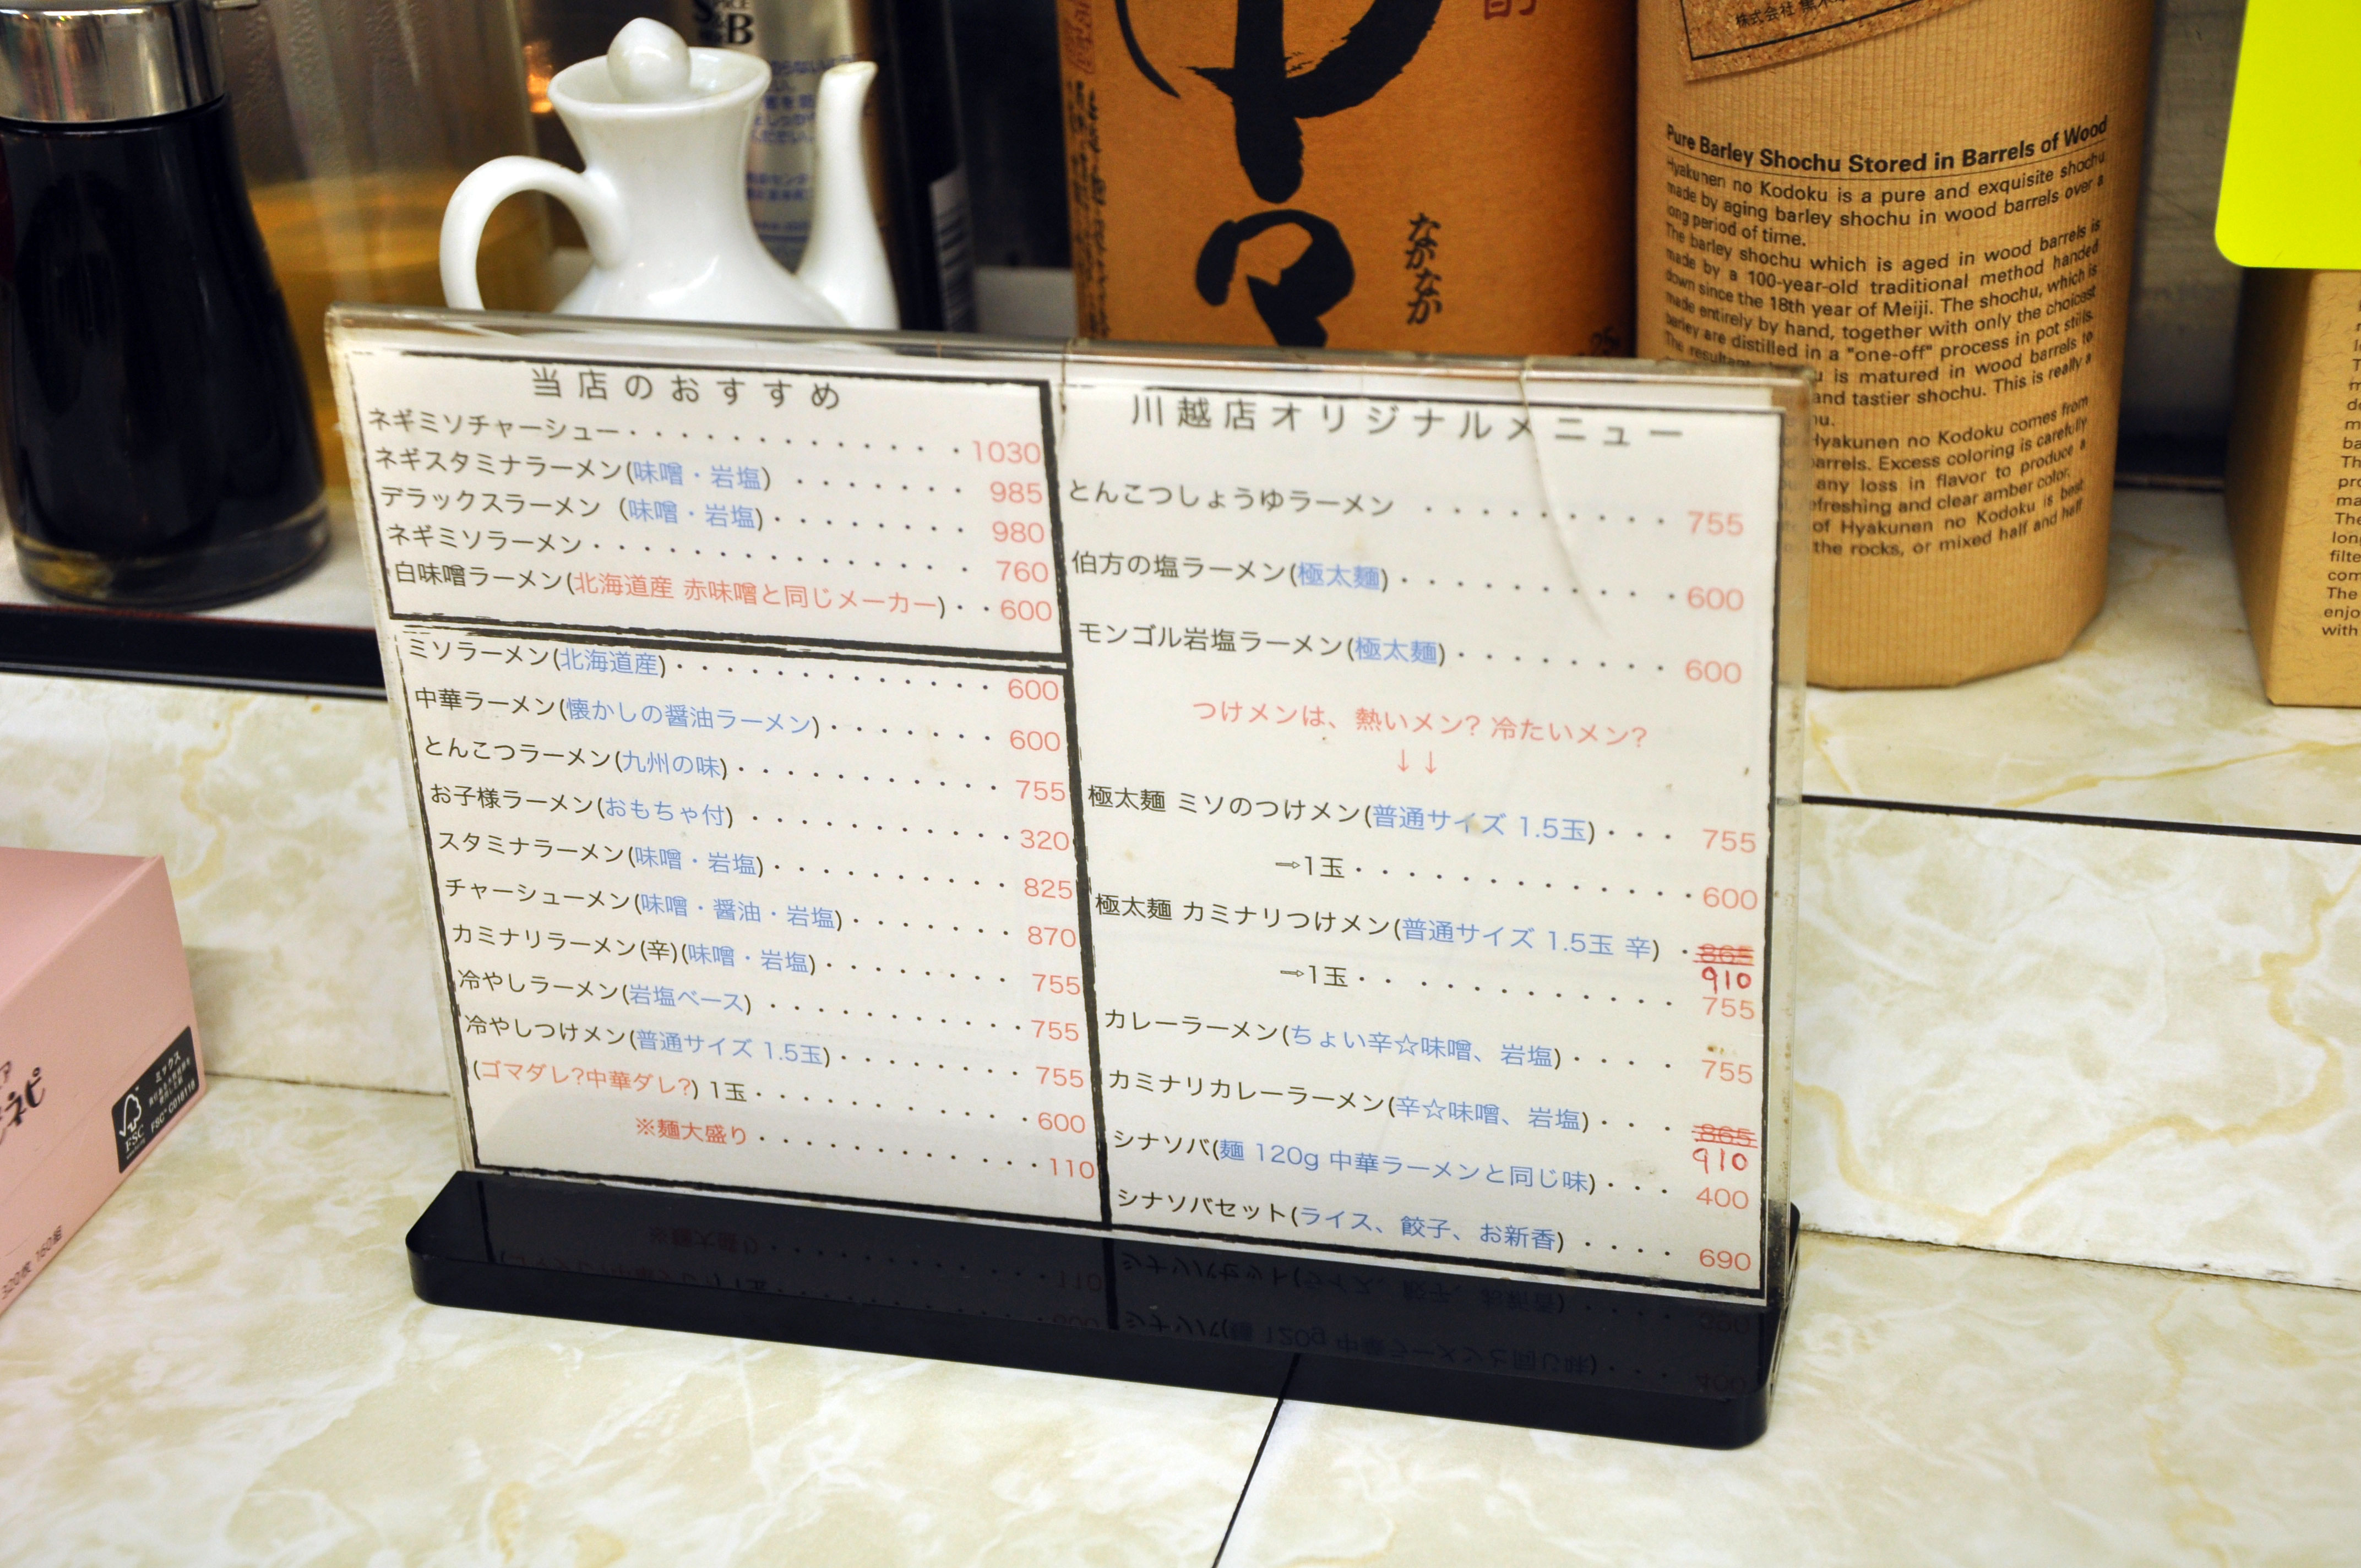 当店のおすすめ
ネギミソチャーシュー・・・・・・・・・・・・・1030
ネギスタミナラーメン(味噌・岩塩) ・・・・・・・ 985
デラックスラーメン (味噌・岩塩)・・・・・・・・ 980
ネギミソラーメン・・・・・・・・・・・・・・・ 760
白味噌ラーメン(北海道産 赤味噌と同じメーカー)・・600
ミソラーメン(北海道産)・・・・・・・・・・・・・ 600
中華ラーメン(懐かしの醤油ラーメン)・・・・・・・ 600
とんこつラーメン(九州の味)・・・・・・・・・・・ 755
お子様ラーメン(おもちゃ付) ・・・・・・・・・・・320
スタミナラーメン(味噌・岩塩)・・・・・・・・・・ 825
チャーシューメン(味噌・醤油・岩塩)・・・・・・・ 870
カミナリラーメン(辛)(味噌・岩塩)・・・・・・・・ 755
冷やしラーメン(岩塩ベース) ・・・・・・・・・・・755
冷やしつけメン(普通サイズ 1.5玉)・・・・・・・・ 755
(ゴマダレ?中華ダレ?) 1玉・・・・・・・・・・・・600
※麺大盛り・・・・・・・・・・・・・110
川越店オリジナルメニュー
とんこつしょうゆラーメン ・・・・・・・・・ 755
伯方の塩ラーメン(極太麺)・・・・・・・・・・・600
モンゴル岩塩ラーメン(極太麺)・・・・・・・・ 600
つけメンは、熱いメン? 冷たいメン?
↓↓
極太麺 ミソのつけメン(普通サイズ 1.5玉)・・・ 755
⇒1玉・・・・・・・・・・・・・600
極太麺 カミナリつけメン(普通サイズ 1.5玉 辛) ・865
910
⇒1玉・・・・・・・・・・・・ 755
カレーラーメン(ちょい辛☆味噌、岩塩)・・・・ 755
カミナリカレーラーメン(辛☆味噌、岩塩)・・・ 865
910
シナソバ(麺 120g 中華ラーメンと同じ味)・・・ 400
シナソバセット(ライス、餃子、お新香) ・・・・ 690
S&B
なかなか
株式会社
Pure Barley Shochu Stored in Barrels of Wood
Hyakunen no Kodoku is a pure and exquisite shochu
made by aging barley shochu in wood barrels over a
long period of time.
The barley shochu which is aged in wood barrels is
made by a 100-year-old traditional method handed
down since the 18th year of Meiji. The shochu, which is
made entirely by hand, together with only the choicest
barley are distilled in a "one-off" process in pot stills.
The is matured in wood barrels to
and tastier shochu. This is really a
Hyakunen no Kodoku comes from
barrels. Excess coloring is carefully
any loss in flavor to produce a
refreshing and clear amber color.
of Hyakunen no Kodoku is best
the rocks, or mixed half and half
ネピ
FSC
ミックス
FSC® C018118
320枚 160組